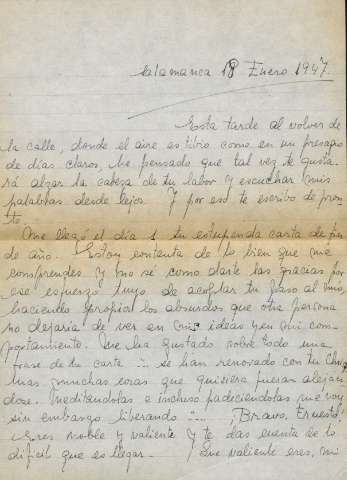 Salamanca 18 Enero 1947
Esta tarde al volver de
la calle, donde el aire es tibio como en un presagio
de días claros, he pensado que tal vez te gusta-
rá alzar la cabeza de tu labor y escuchar mis
palabras desde lejos. Y por eso te escribo de pron-
to.
Me llegó el día 1 tu estupenda carta de fin
de año. Estoy contenta de lo bien que me
comprendes y no sé como darte las gracias por
ese esfuerzo tuyo de acoplar tu paso al mío,
haciendo propios los absurdos que otra persona
no dejaría de ver en mis ideas y en mi com-
portamiento. Me ha gustado sobre todo una
frase de tu carta ... se han renovado con tu
muchas cosas que quisiera fueran alejan-
dose. Meditándolas e incluso padeciéndolas me voy
sin embargo liberando ... ¡Bravo, Ernesto!
Eres noble y valiente y te das cuenta de lo
difícil que es llegar. ¡Que valiente eres, mi